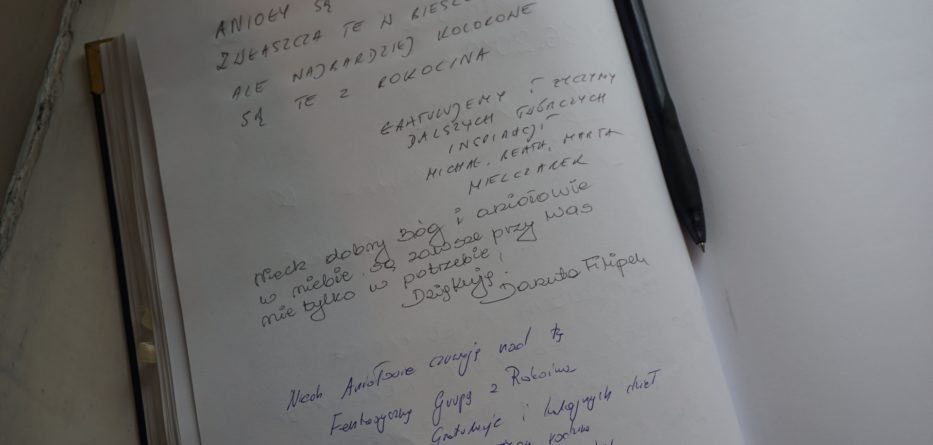 ANIOŁY SĄ
ZWŁASZCZA TE W
ALE NAJBARDZIEJ KOLOROWE
SĄ TE Z ROKOCINA
GRATULUJEMY I ŻYCZYMY
DALSZYCH TWÓRCZYCH
INSPIRACJI
MICHAŁ, BEATA, MARTA
MIELCZAREK
Niech dobry Bóg i aniołowie
w niebie są zawsze przy Was
nie tylko w potrzebie!
Dziękuję. Danuta Filipek
Niech Aniołowie czuwają nad tą
Fantastyczną Grupą z Rokocina
Gratulacje i kolejnych dzieł